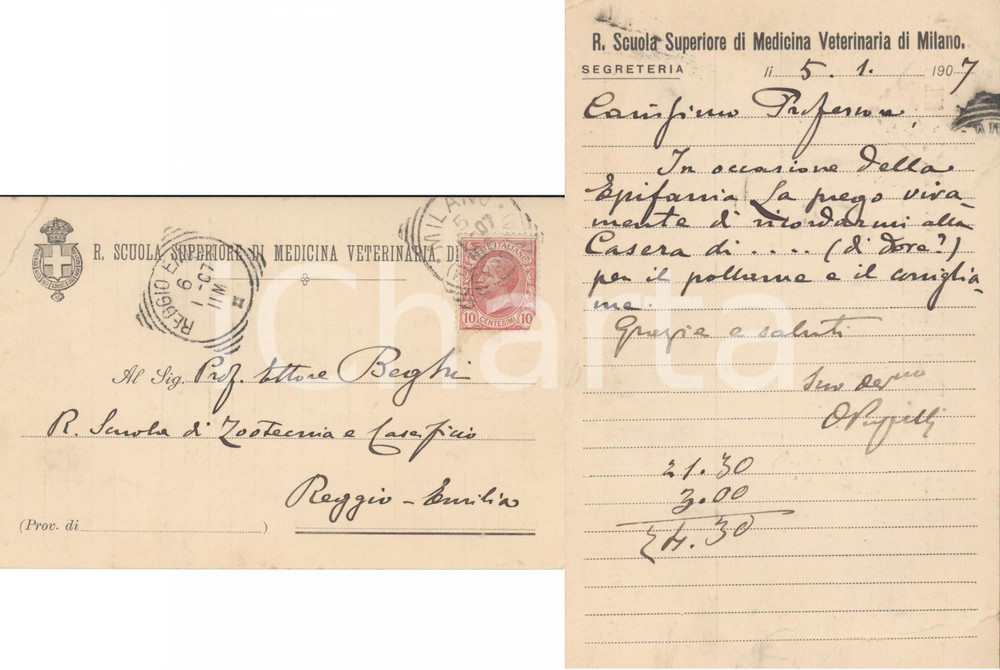 R. SCUOLA SUPERIORE DI MEDICINA VETERINARIA DI
REGGIO E
6 1 07
11 M
MILANO
5
07
10 CENTESIMI 10
Al Sig. Prof. Ettore Beghi
R. Scuola di Zootecnia e Caseificio
Reggio-Emilia
(Prov. di )
R. Scuola Superiore di Medicina Veterinaria di Milano.
SEGRETERIA
li 5. 1. 1907
Carissimo Professore,
In occasione della
Epifania La prego viva-
mente di ricordarmi alla
Casera di .... (di Dore?)
per il pollame e il coniglia-
me.
Grazie e saluti
Suo dev.mo
21.30
3.00
24.30
iCharta